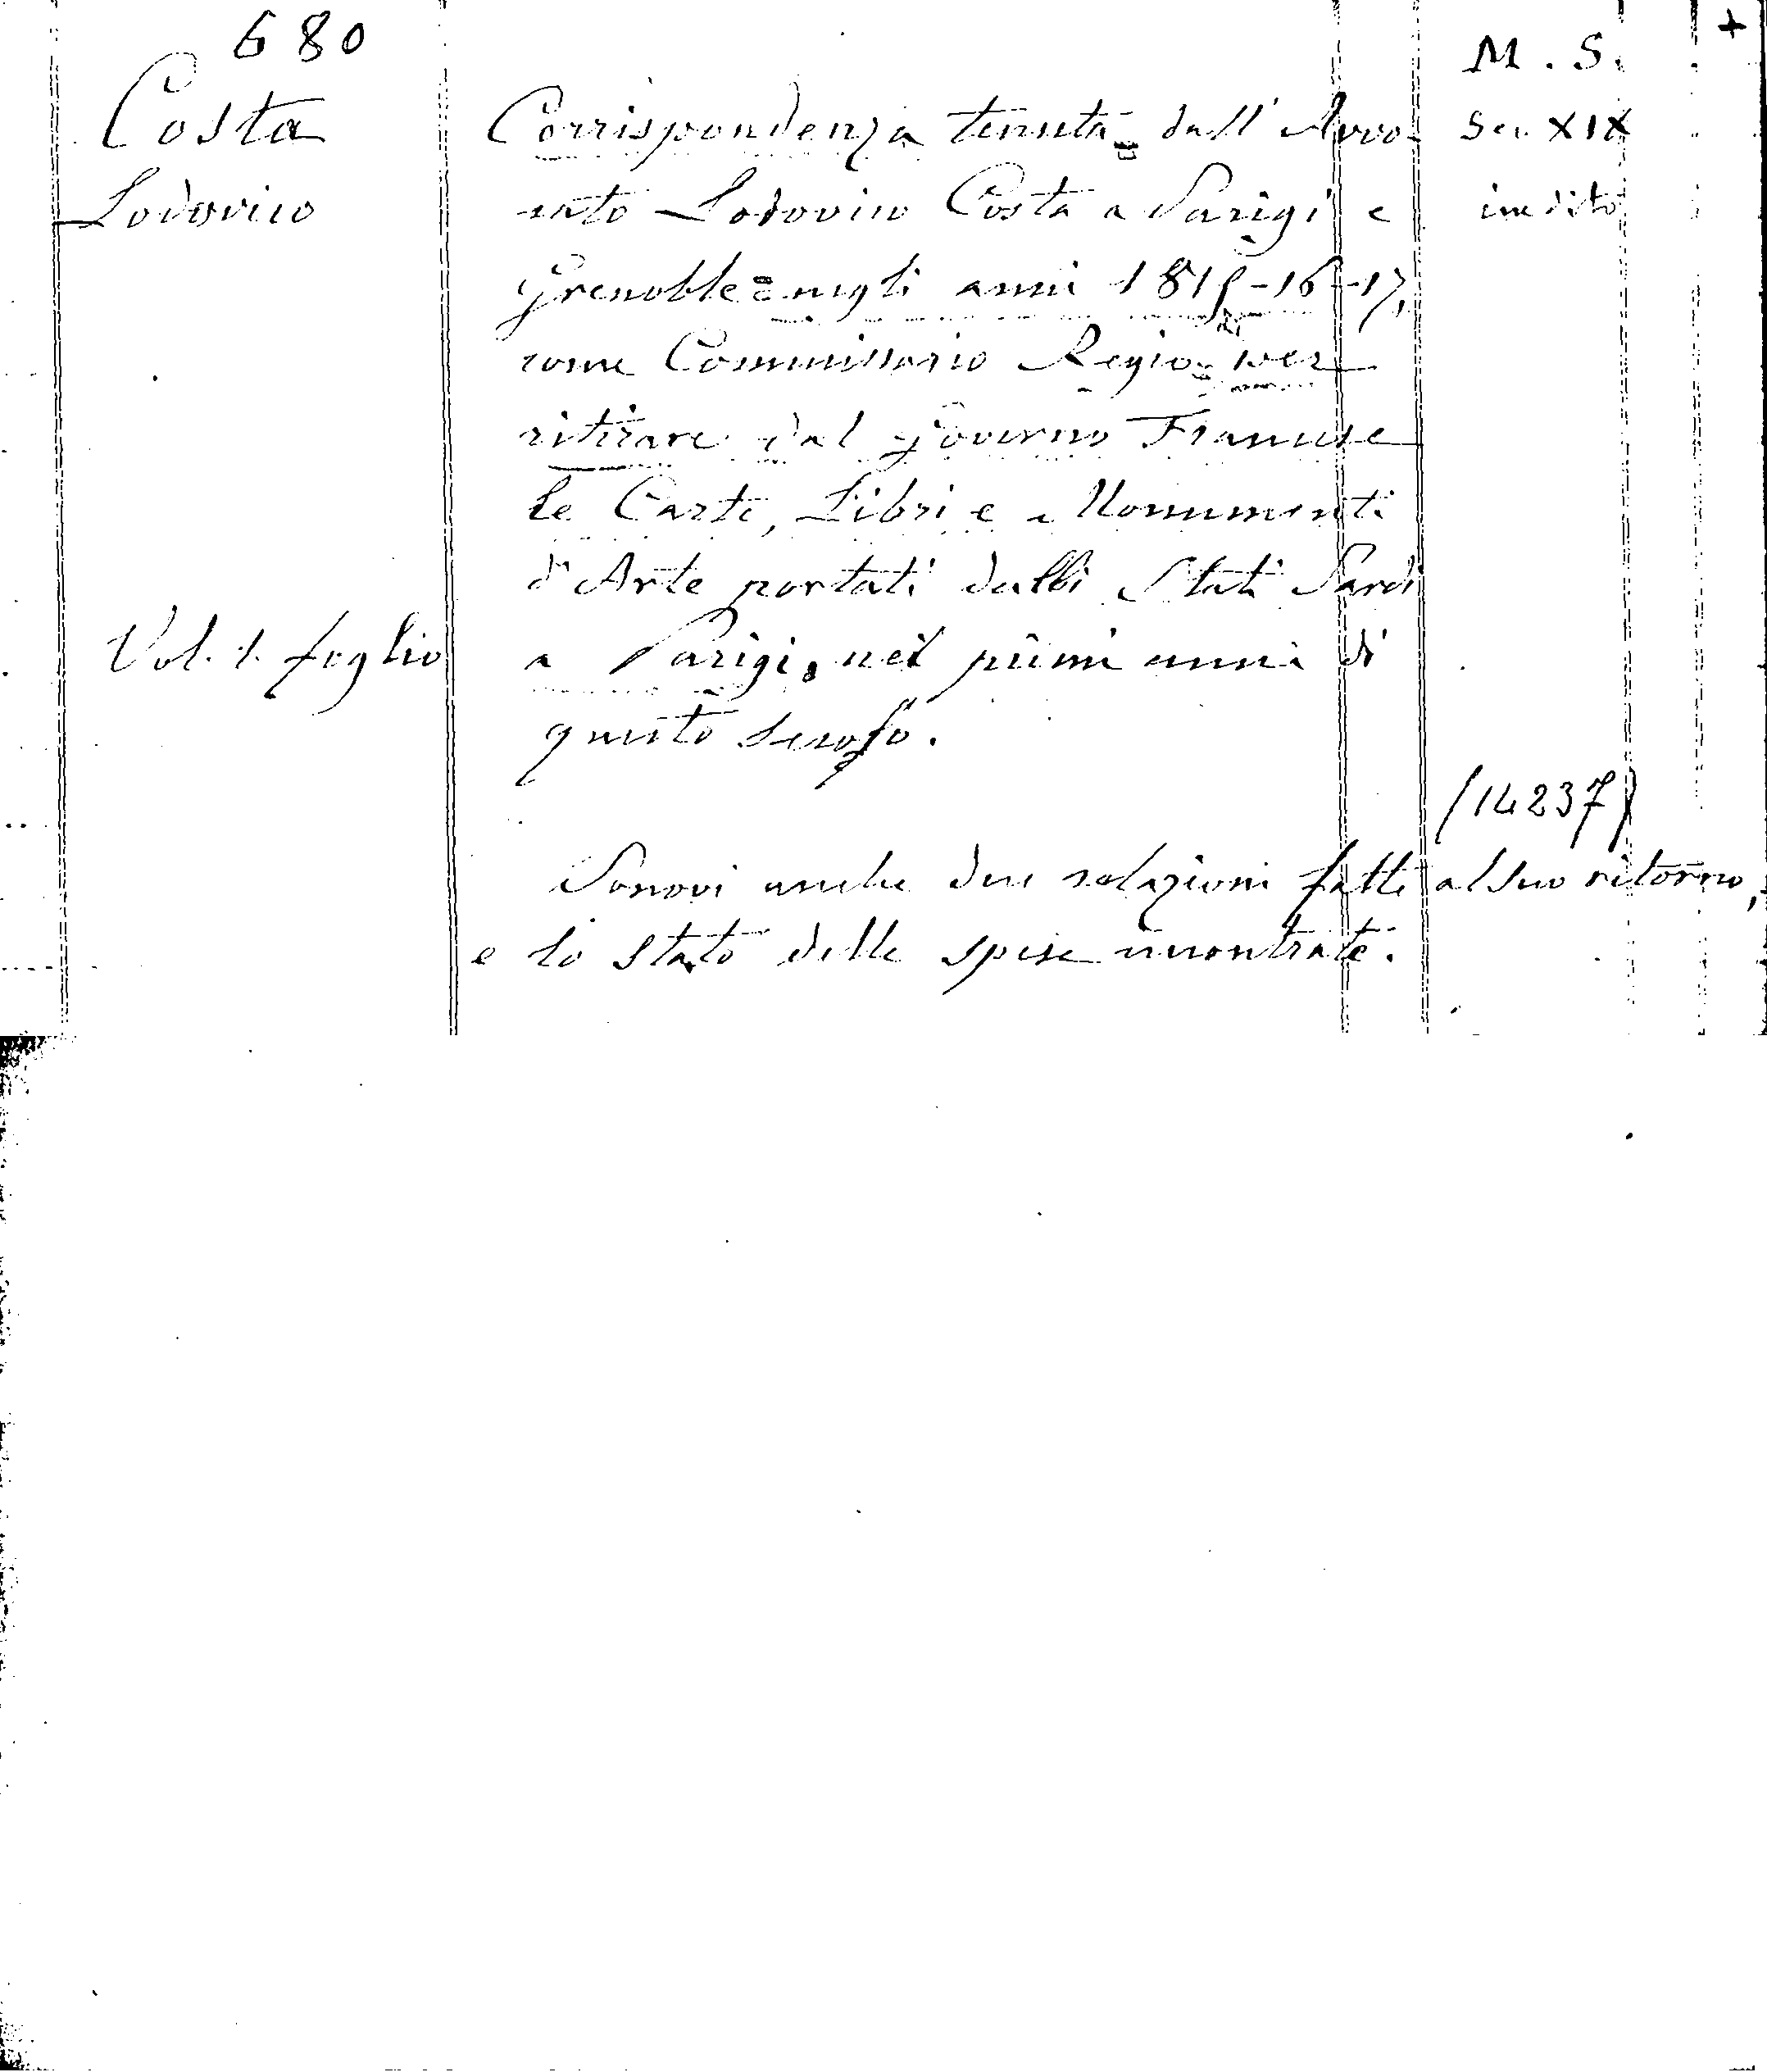 680
M. S. +
Costa
Lodovico
Vol. 1. foglio
Corrispondenza tenuta dall' Avvo-
cato Lodovico Costa a Parigi e
Grenoble negli anni 1815-16-17,
come Commissario Regio per
ritirare dal Governo Francese
le Carte, Libri e Monumenti
d'Arte portati dalli Stati Sardi
a Parigi, nei primi anni di
questo secolo.
Sec XIX
inedito
(14237)
Sonovi anche due relazioni fatte al suo ritorno,
e lo stato delle spese incontrate.